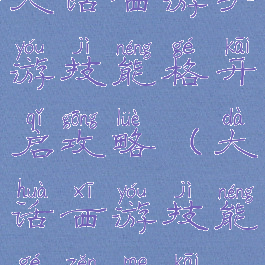 yóu jì néng gé kāi
游技能格开
qǐ gōng lüè dà
启攻略（大
huà xī yóu jì néng
话西游技能
gé zěn me kāi